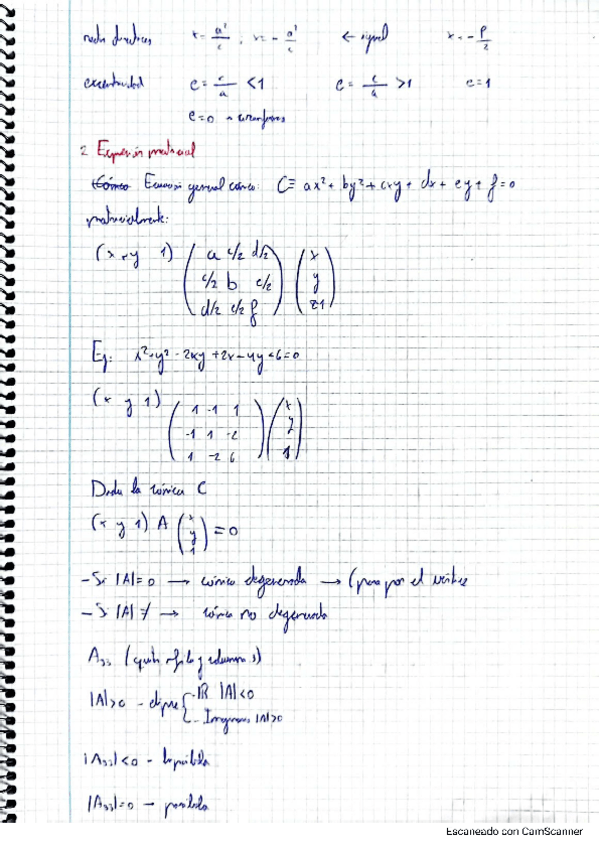 rectas directrices x = a²/c ; x = - a²/c ← igual x = - p/2
excentricidad e = c/a < 1 e = c/a > 1 e = 1
e = 0 → circunferencia
2. Expresión matricial
Ecuación general cónica: C ≡ ax² + by² + cxy + dx + ey + f = 0
matricialmente:
(x y 1) ( a c/2 d/2 ) ( x )
( c/2 b e/2 ) ( y )
( d/2 e/2 f ) ( 1 )
Ej: x² + y² - 2xy + 2x - 4y + 6 = 0
(x y 1) ( 1 -1 1 ) ( x )
( -1 1 -2 ) ( y )
( 1 -2 6 ) ( 1 )
Dada la cónica C
(x y 1) A ( x y 1 ) = 0
- Si |A| = 0 → cónica degenerada → (pasa por el vértice
- Si |A| ≠ → cónica no degenerada
A₃₃ (quito fila y columna 3)
|A| > 0 - elipse { - IR |A| < 0
- Imaginaria |A| > 0
|A₃₃| < 0 - hipérbola
|A₃₃| = 0 → parábola
Escaneado con CamScanner